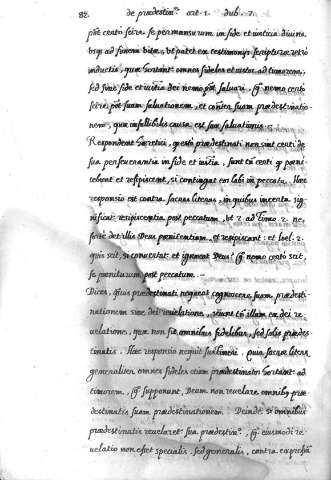 82 de praedestin.e art. 1. dub. 7.
pōt certo scire se permansurum in fide et iustitia divina
usq; ad finem vitae, ut patet ex testimonijs scripturae retro
inductis, quae hortantur omnes fideles et iustos ad timorem,
sed sine fide et iustitia dei nemo pōt salvari, ergo nemo certo
scire pōt suam salvationem, et contra suam praedestinatio-
nem, quae infallibilis causa est suae salvationis.
Respondent haeretici, quod praedestinati non sint certi de
sua perseverantia in fide et iustitia, sunt tn certi quod poeni-
tebunt et resipiscent, si contingat eos labi in peccata. Haec
responsio est contra sacras literas, in quibus incerta sig-
nificat resipiscentia post peccatum, ut 2. ad Timo. 2. ne
forte det illis Deus poenitentiam, et resipiscant. et Joel. 2.
quis scit, si convertat et ignoscat Deus? ergo nemo certo scit,
se poeniturum post peccatum. -
Dices, quamvis praedestinati nequeat cognoscere suam praedesti-
nationem sine dei revelatione, sciunt tn illam ex dei re-
velatione, quae non fit omnibus fidelibus, sed solis praedes-
tinatis. Haec responsio nequit sustineri. Quia sacrae literae
generaliter omnes fideles etiam praedestinatos hortantur ad
timorem, ergo supponunt, Deum non revelare omnibus prae-
destinatis suam praedestinationem. Deinde si omnibus
praedestinatis revelaret sua praedestin.o, ergo eiusmodi re-
velatio non esset specialis, sed generalis, contra